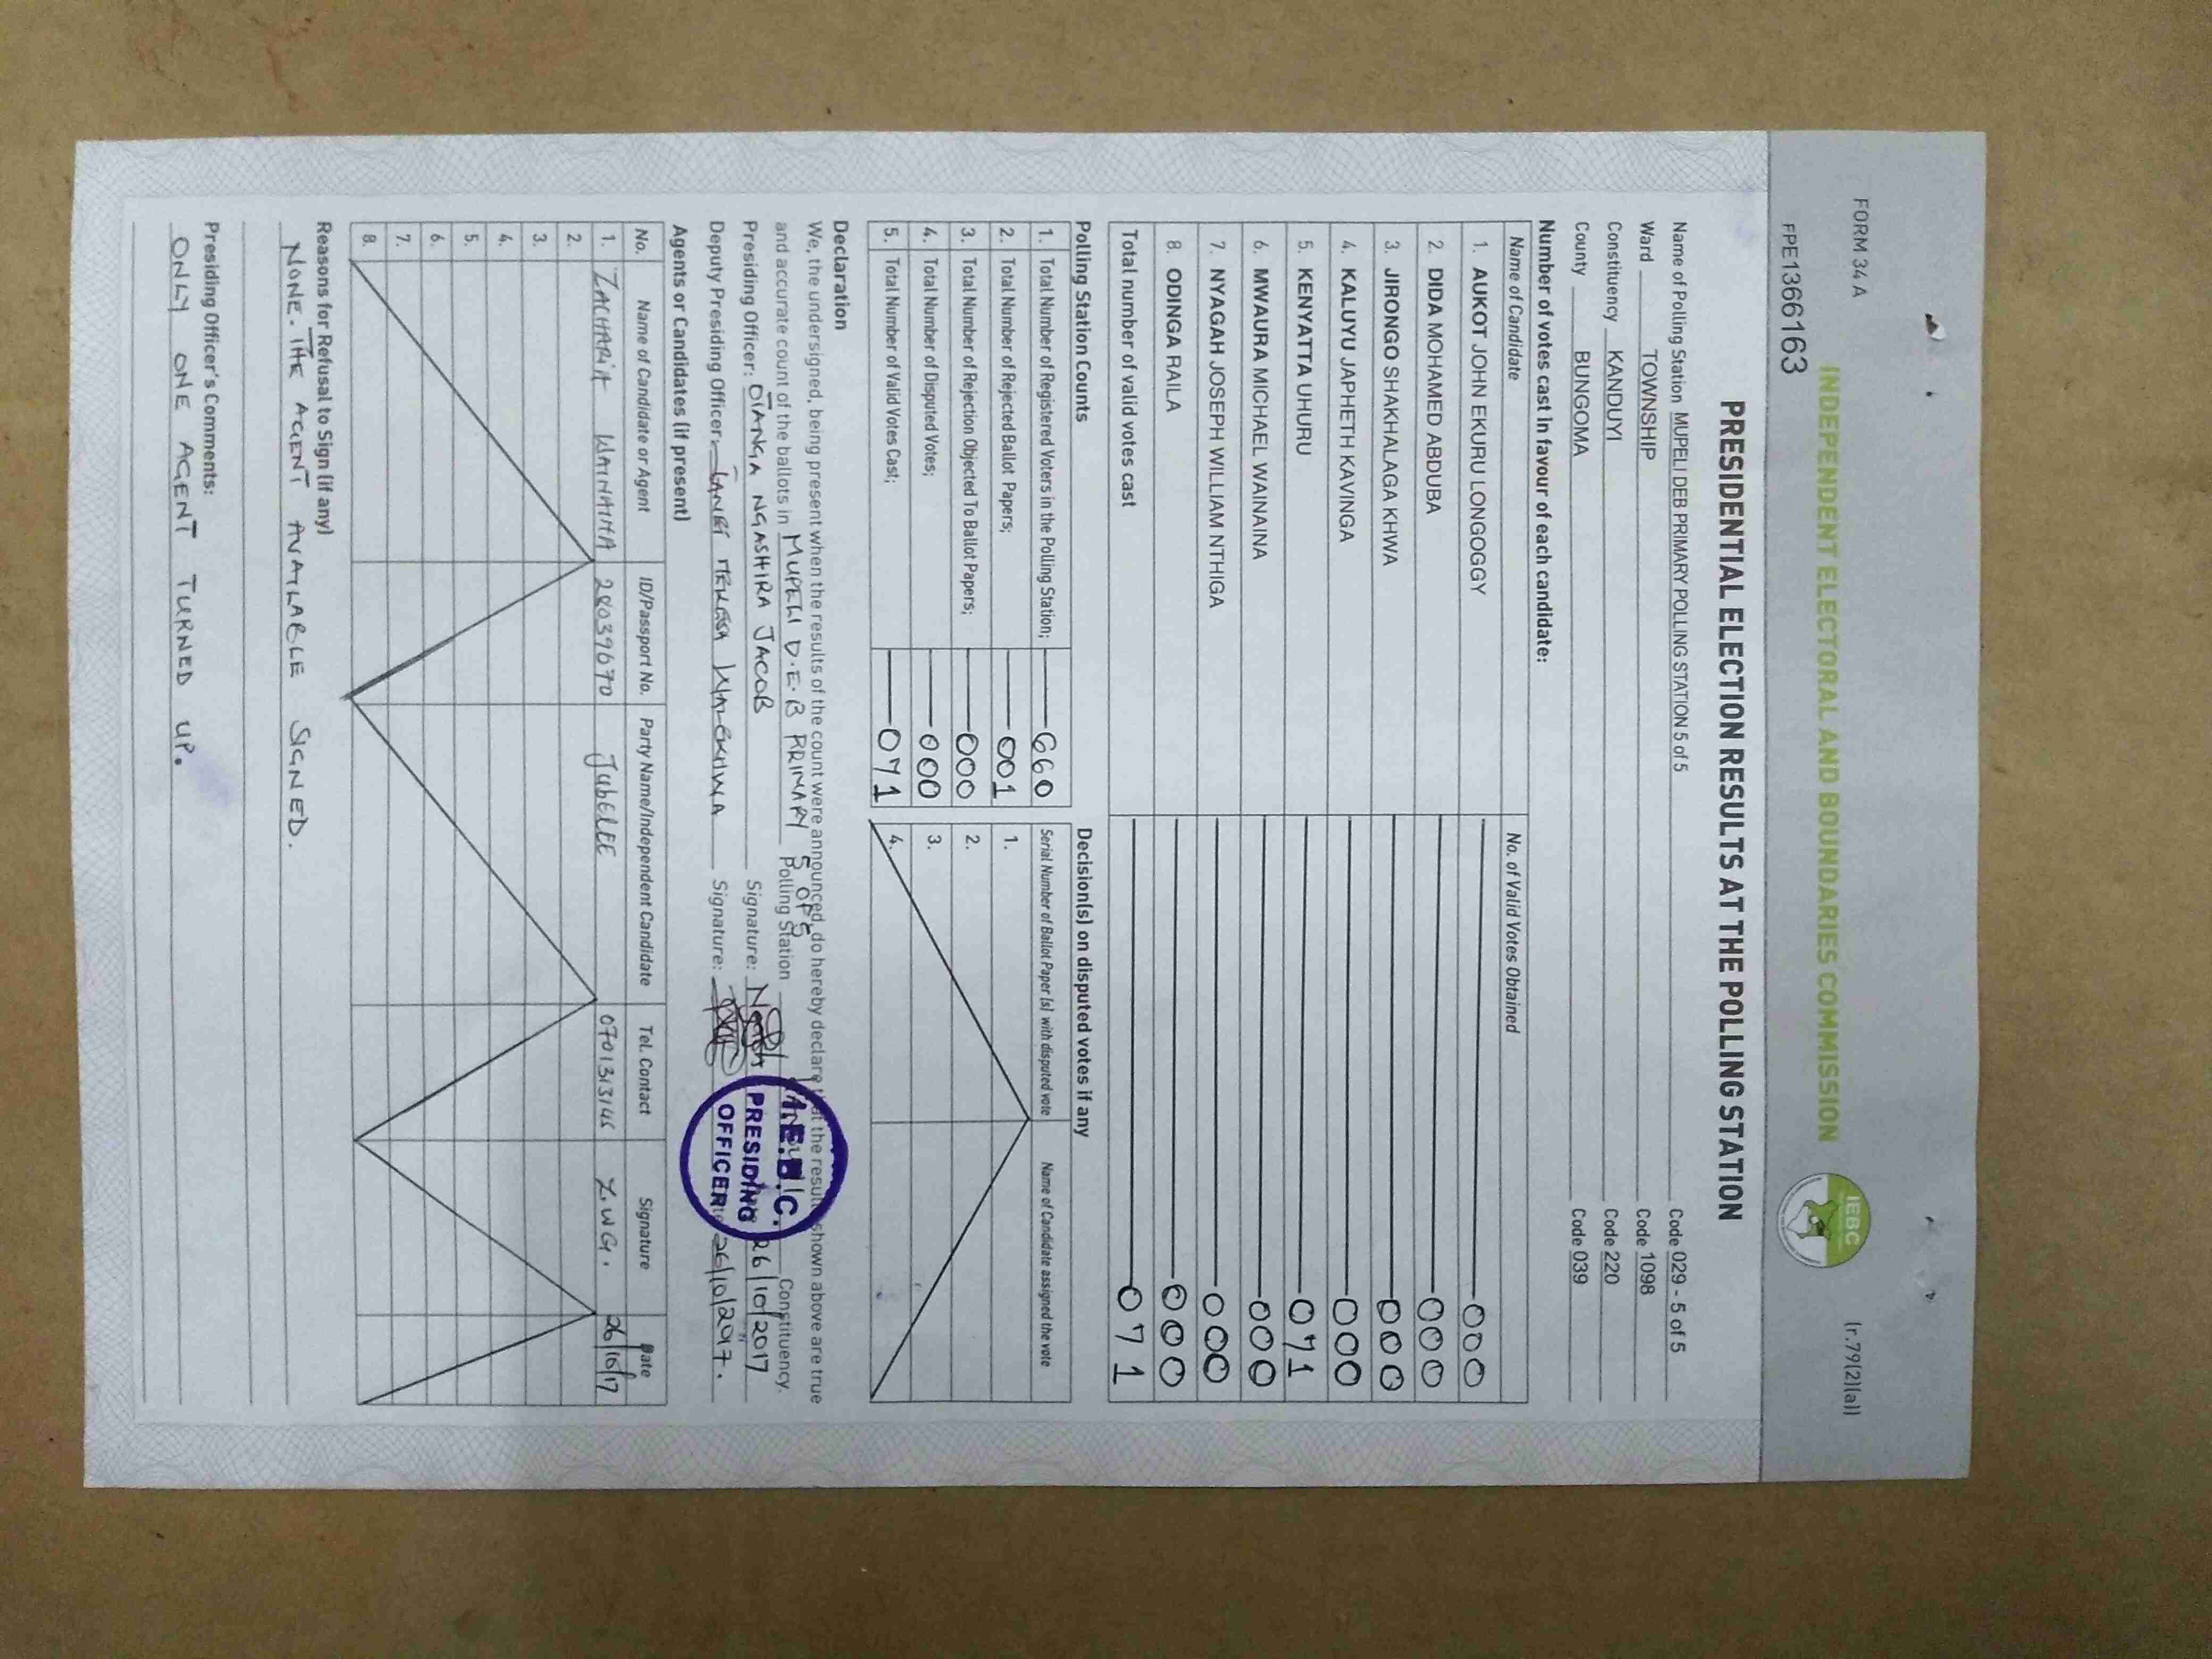 FORM 34 A
(r.79(2)(a))
INDEPENDENT ELECTORAL AND BOUNDARIES COMMISSION
IEBC
FPE1366163
PRESIDENTIAL ELECTION RESULTS AT THE POLLING STATION
Name of Polling Station MUPELI DEB PRIMARY POLLING STATION 5 of 5 Code 029 - 5 of 5
Ward TOWNSHIP Code 1098
Constituency KANDUYI Code 220
County BUNGOMA Code 039
Number of votes cast in favour of each candidate:
Name of Candidate No. of Valid Votes Obtained
1. AUKOT JOHN EKURU LONGOGGY 000
2. DIDA MOHAMED ABDUBA 000
3. JIRONGO SHAKHALAGA KHWA 000
4. KALUYU JAPHETH KAVINGA 000
5. KENYATTA UHURU 071
6. MWAURA MICHAEL WAINAINA 000
7. NYAGAH JOSEPH WILLIAM NTHIGA 000
8. ODINGA RAILA 000
Total number of valid votes cast 071
Polling Station Counts
1. Total Number of Registered Voters in the Polling Station; 660
2. Total Number of Rejected Ballot Papers; 001
3. Total Number of Rejection Objected To Ballot Papers; 000
4. Total Number of Disputed Votes; 000
5. Total Number of Valid Votes Cast; 071
Decision(s) on disputed votes if any
Serial Number of Ballot Paper (s) with disputed vote Name of Candidate assigned the vote
1.
2.
3.
4.
Declaration
We, the undersigned, being present when the results of the count were announced, do hereby declare that the results shown above are true
and accurate count of the ballots in MUPELI D.E.B PRIMARY 5 OF 5 Polling Station Constituency.
Presiding Officer: OJANGA NGASHIRA JACOB Signature: 26/10/2017
Deputy Presiding Officer: Signature: 26/10/2017.
I.E.B.C.
PRESIDING
OFFICER
Agents or Candidates (if present)
No. Name of Candidate or Agent ID/Passport No. Party Name/Independent Candidate Tel. Contact Signature Date
1. ZACHARIA WAINAINA 28039670 JubELEE 0701313146 Z.WG. 26/10/17
2.
3.
4.
5.
6.
7.
8.
Reasons for Refusal to Sign (if any)
NONE. THE AGENT AVAILABLE SIGNED.
Presiding Officer's Comments:
ONLY ONE AGENT TURNED UP.